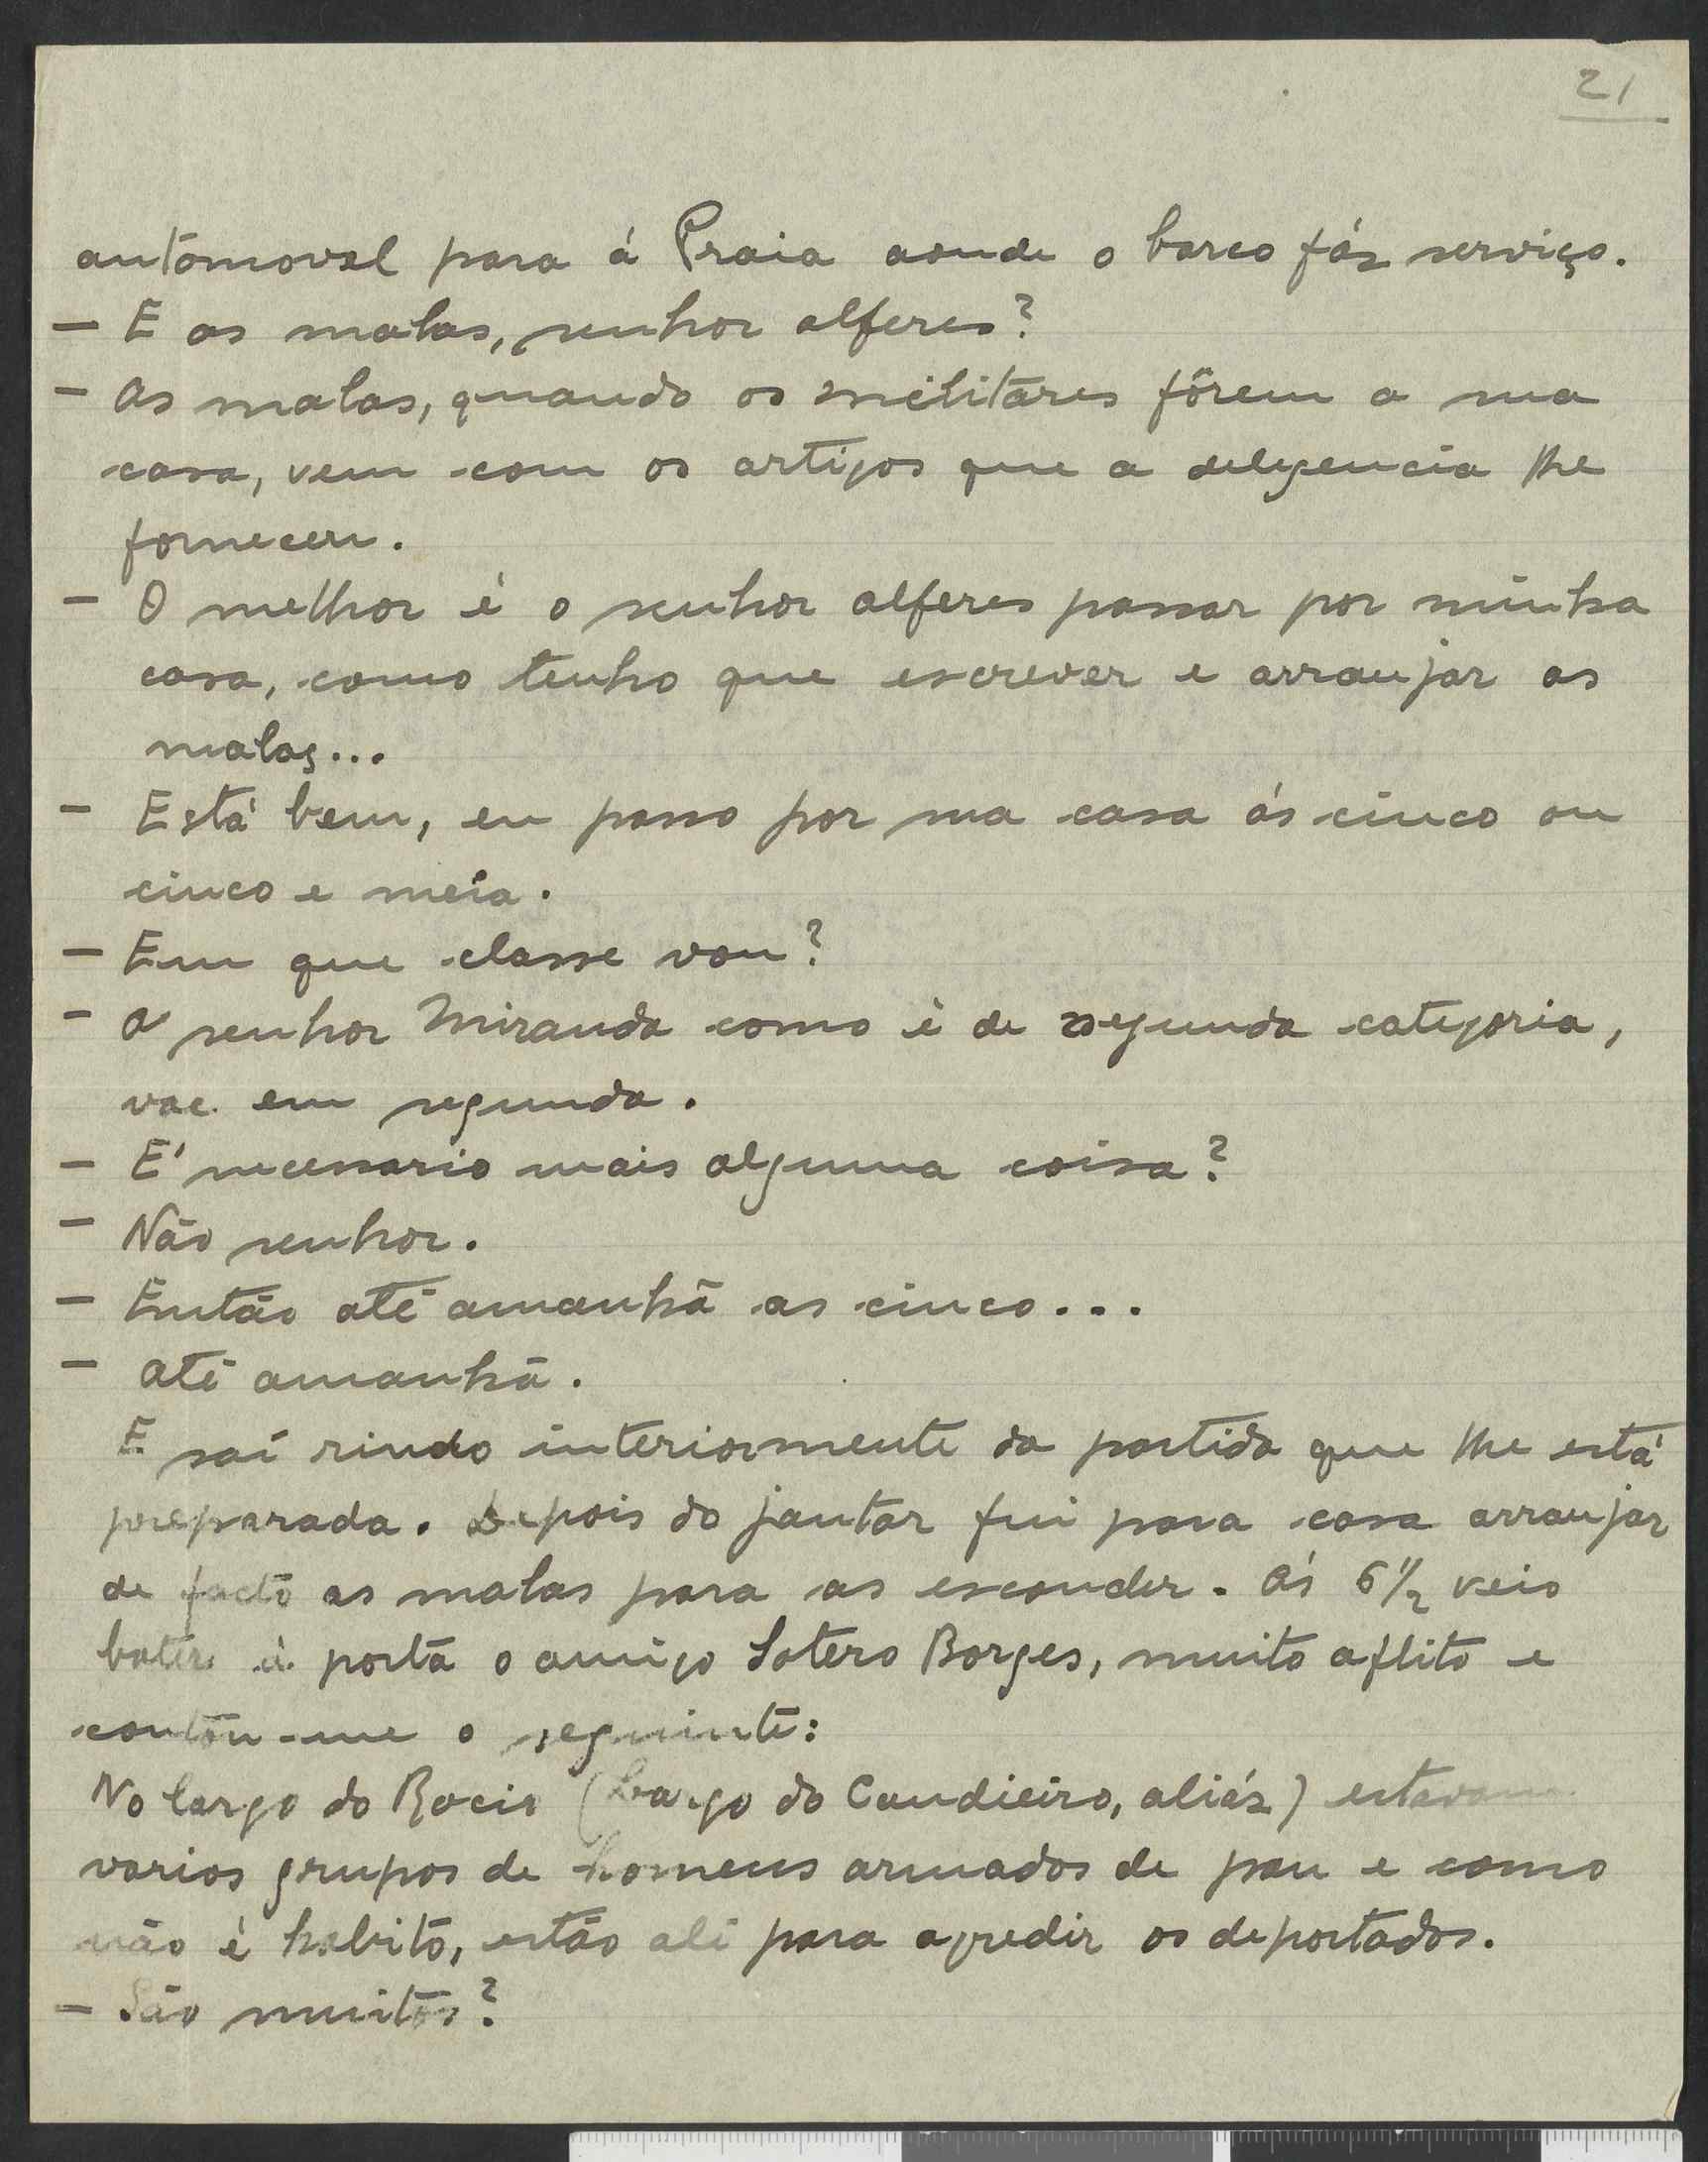 21
automovel para á Praia aonde o barco fáz serviço.
– E as malas, senhor alferes?
– As malas, quando os militares fôrem a sua
casa, vem com os artigos que a delegencia lhe
forneceu.
– O melhor é o senhor alferes passar por minha
casa, como tenho que escrever e arranjar as
malas...
– Está bem, eu passo por sua casa ás cinco ou
cinco e meia.
– Em que classe vou?
– O senhor Miranda como é de segunda categoria,
vae em segunda.
– E' necessario mais alguma coisa?
– Não senhor.
– Então até amanhã as cinco...
– Até amanhã.
E saí rindo interiormente da partida que lhe está
preparada. Depois do jantar fui para casa arranjar
de facto as malas para as esconder. Ás 6 1/2 veio
bater á porta o amigo Sotero Borges, muito aflito e
contou-me o seguinte:
No largo do Rocio (Largo do Candieiro, aliáz) estavam
varios grupos de homens armados de pau e como
não é habito, estão ali para agredir os deportados.
– São muitos?